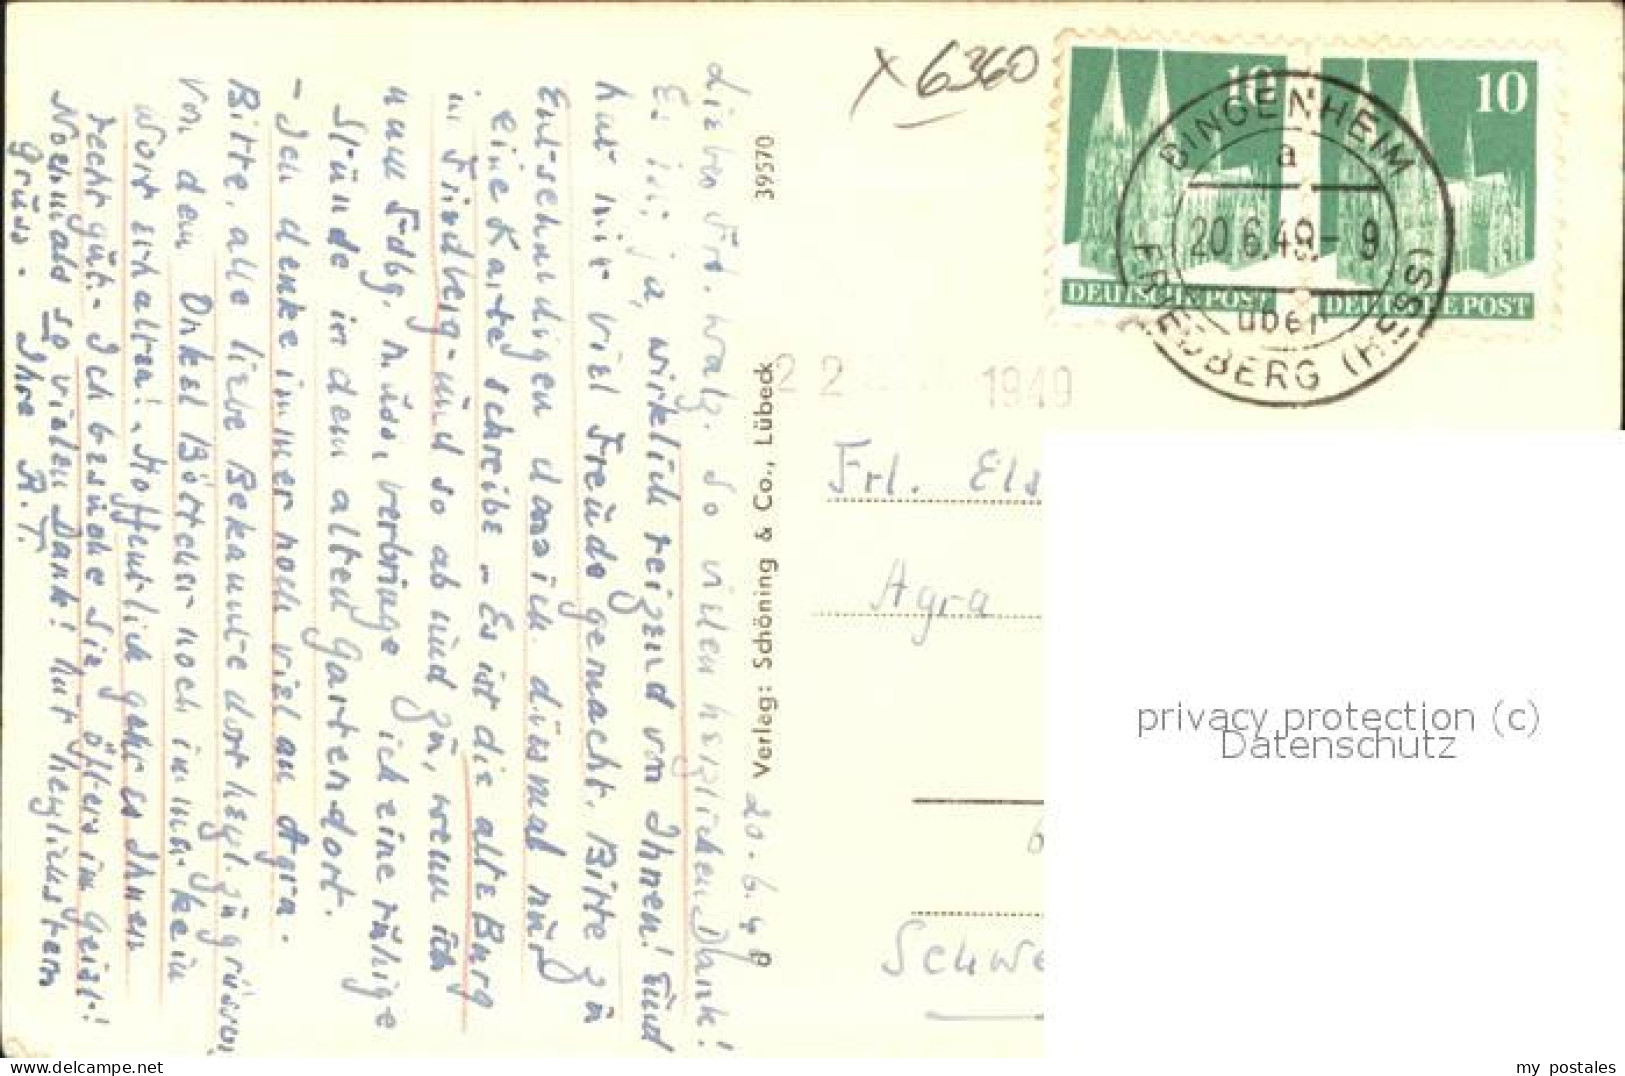 x 6360
10
10
DEUTSCHE POST
DEUTSCHE POST
BINGENHEIM
a
20.6.49.- 9
über
FRIEDBERG (HESS)
22 1949
20.6.49
Liebes Frl. Walz. So vielen herzlichen Dank!
Es ist ja, wirklich reizend von Ihnen! und
hat mir viel Freude gemacht. Bitte zu
entschuldigen dass ich diesmal nur
eine Karte schreibe - Es ist die alte Burg
in Friedberg - und so ab und zu, wenn ich
nach Fdbg. muss, verbringe ich eine ruhige
Stünde in dem alten Garten dort.
- Ich denke immer noch viel an Agra.
Bitte, alle liebe Bekannte dort herzl. zu grüssen
Von dem Onkel Böttcher noch immer kein
Wort erhalten! Hoffentlich geht es Ihnen
recht gut - Ich besuche Sie öfters im Geist!
Nochmals so vielen Dank! und herzlichsten
Grüss. Ihre R.T.
39570
Verlag: Schöning & Co., Lübeck
Frl. Els
Agra
Schwe
privacy protection (c)
Datenschutz
my postales
www.delcampe.net